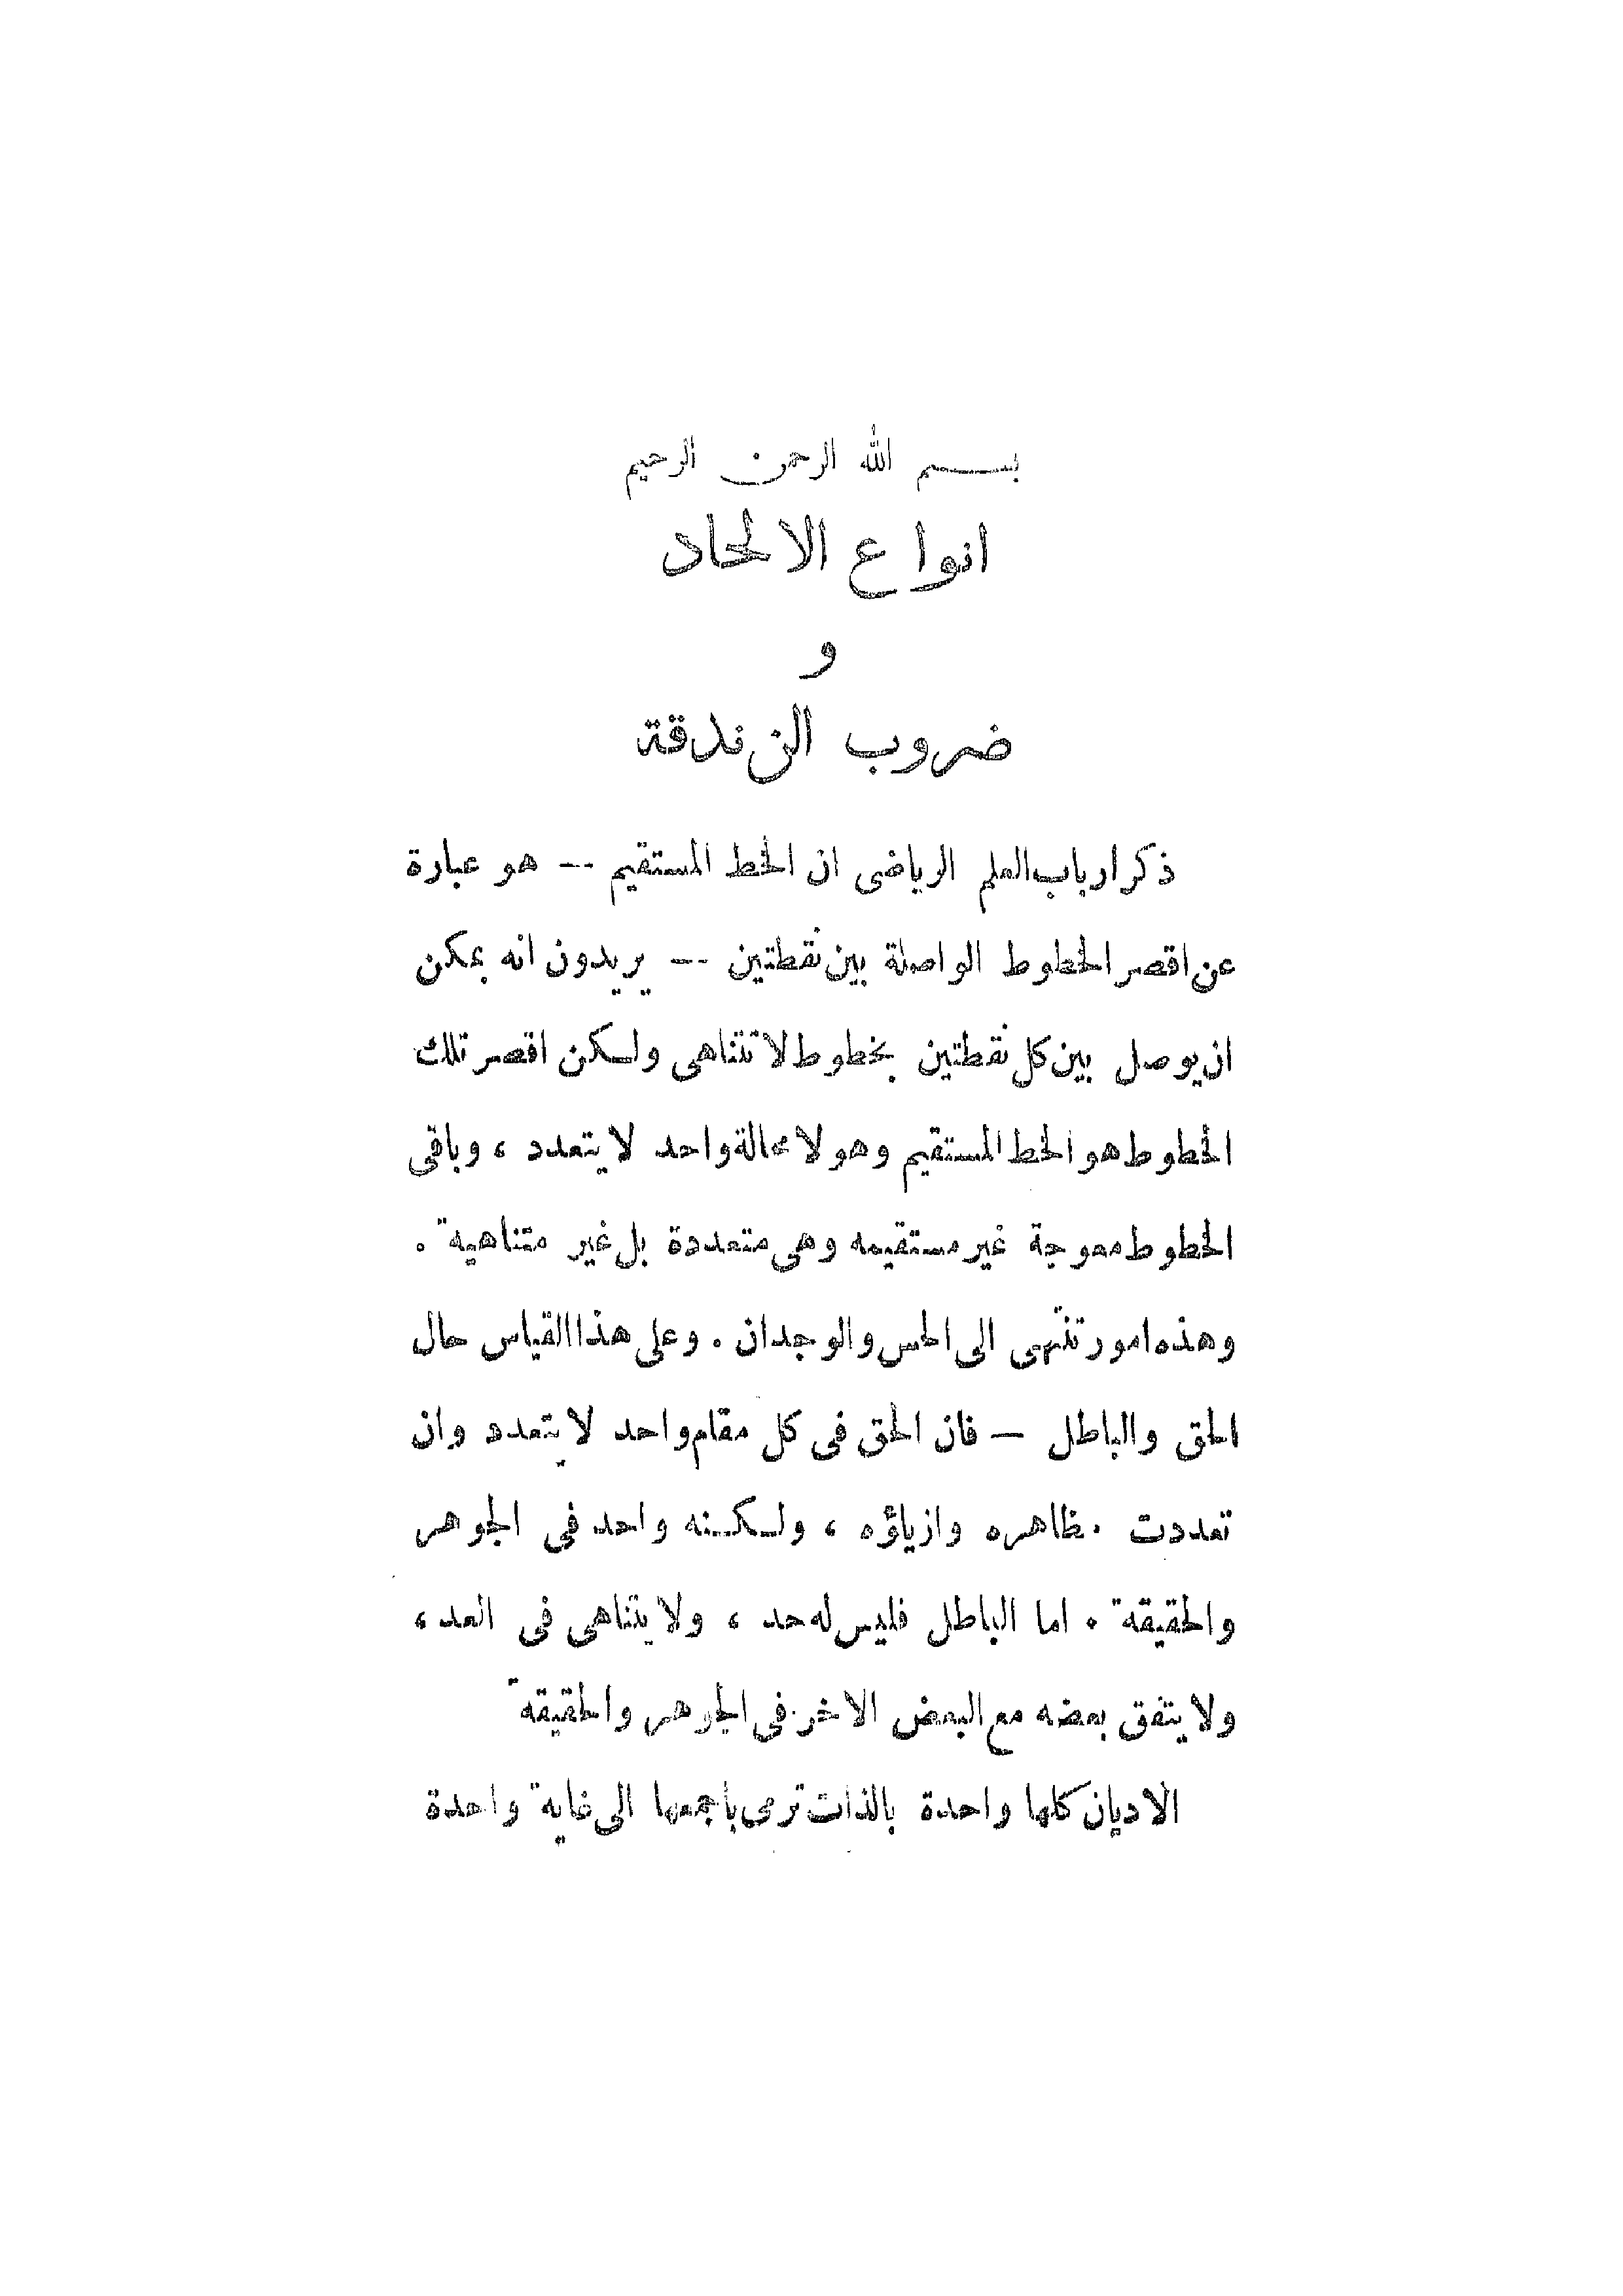 بسم الله الرحمن الرحيم
انواع الالحاد
و
ضروب الزندقة
ذكر ارباب العلم الرياضى ان الخط المستقيم -- هو عبارة
عن اقصر الخطوط الواصلة بين نقطتين -- يريدون انه يمكن
ان يوصل بين كل نقطتين بخطوط لا تتناهى ولكن اقصر تلك
الخطوط هو الخط المستقيم وهو لا محالة واحد لا يتعدد ، وباقى
الخطوط معوجة غير مستقيمه وهى متعددة بل غير متناهية .
وهذه امور تنتهى الى الحس والوجدان . وعلى هذا القياس حال
الحق والباطل — فان الحق فى كل مقام واحد لا يتعدد وان
تعددت مظاهره وازياؤه ، ولكنه واحد فى الجوهر
والحقيقة . اما الباطل فليس له حد ، ولا يتناهى فى العد ،
ولا يتفق بعضه مع البعض الاخر فى الجوهر والحقيقة
الاديان كلها واحدة بالذات ترمى بأجمعها الى غاية واحدة